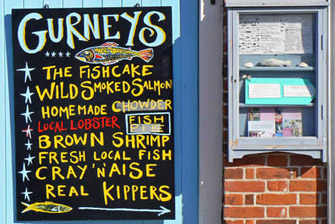 GURNEYS
THE FISHCAKE
WILD SMOKED SALMON
HOMEMADE CHOWDER
LOCAL LOBSTER FISH
PIE
BROWN SHRIMP
FRESH LOCAL FISH
CRAY 'N' AISE
REAL KIPPERS